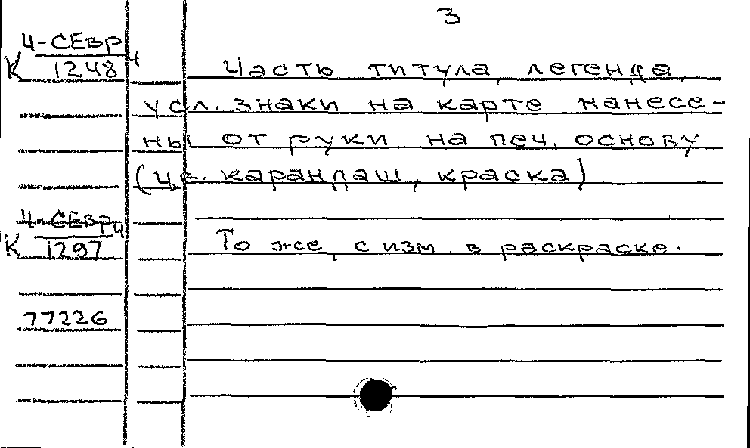 3
К 4-СЕвр 4
1248
Часть титула, легенда,
усл. знаки на карте нанесе-
ны от руки на печ. основу
(цв. карандаш, краска)
К 4-СЕвр 4
1297
То же, с изм. в раскраске.
77226